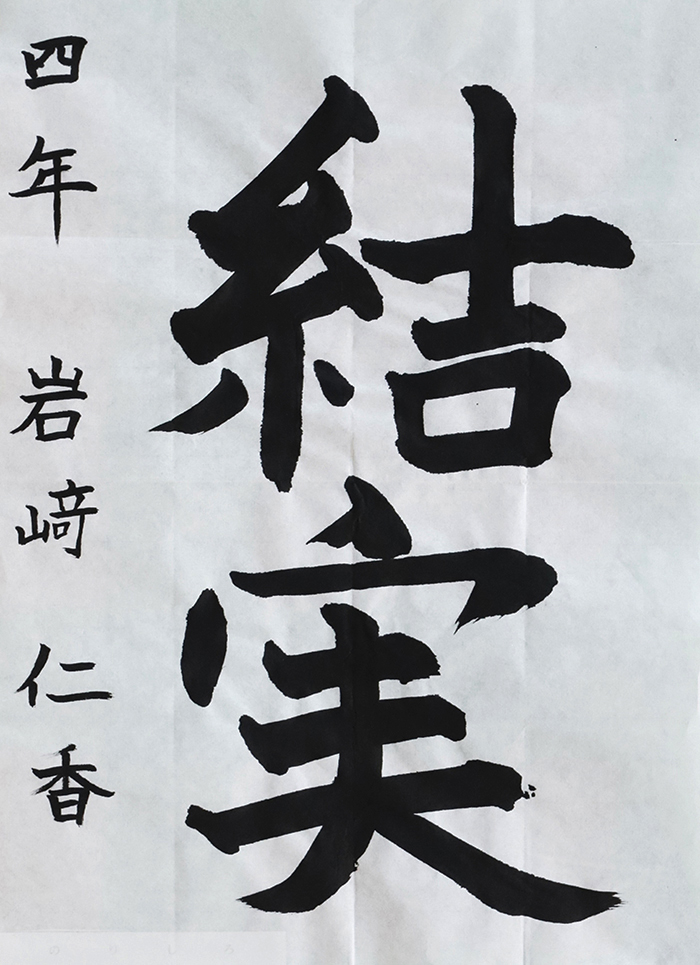 結実
四年 岩﨑 仁香